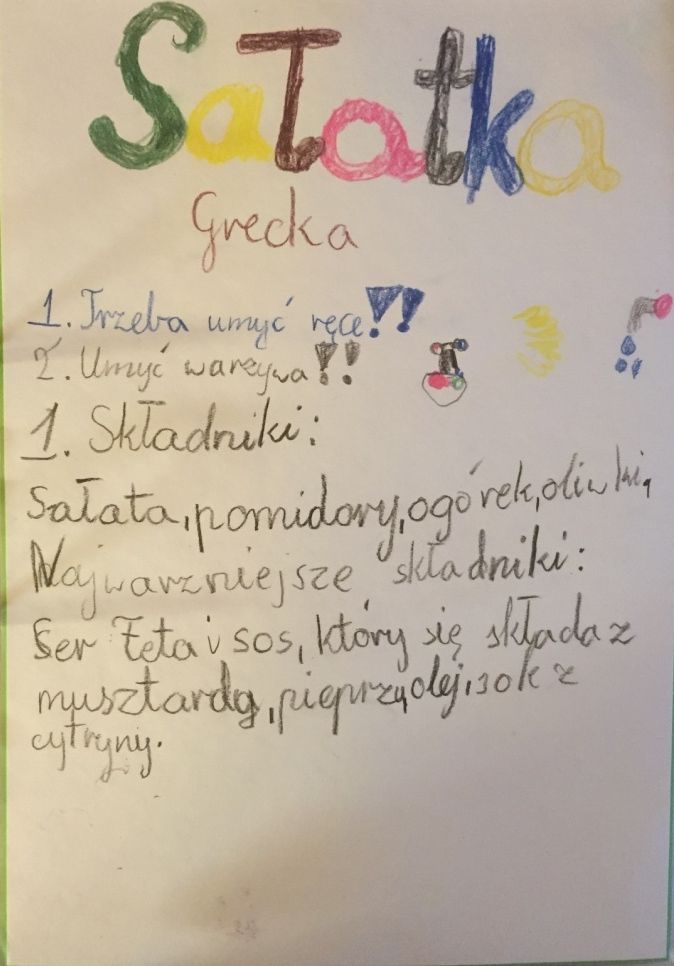 Sałatka
Grecka
1. Trzeba umyć ręce!!
2. Umyć warzywa!!
1. Składniki:
Sałata, pomidory, ogórek, oliwki,
Najwarzniejsze składniki:
Ser Feta i sos, który się składa z
musztardy, pieprzu, olej, sok z
cytryny.